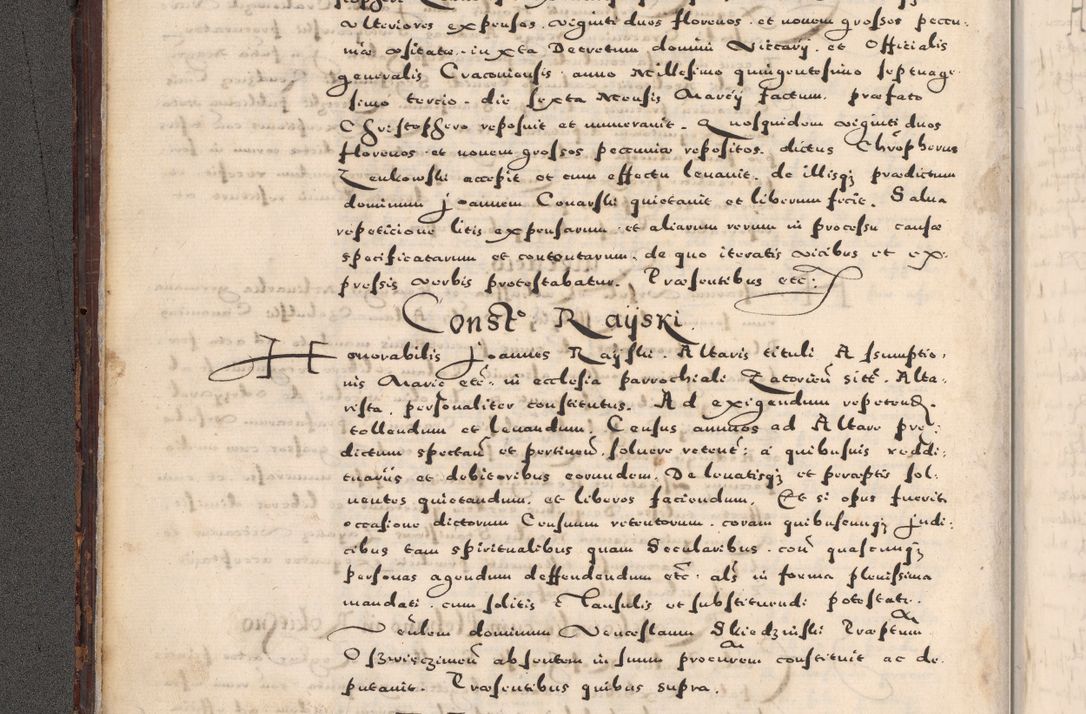 vlteriores expensas viginti duos florenos et nouem grossos pecu-
niæ vsitatæ iuxta Decretum domini Viccarÿ et Officialis
generalis Cracouiensis anno Millesimo quingentesimo septuage-
simo tercio die sexta Mensis Marcÿ factum, præfato
Christophero reposuit et numerauit. Quosquidem viginti duos
florenos et nouem grossos pecuniæ repositos dictus Chrõpherus
Zenkowski accepit et cum effectu leuauit, de illisqz prædictum
dominum Joannem Conarski quietauit et liberum fecit, Salua
repeticione litis expensarum et aliarum rerum in processu causæ
specificatarum et contentarum, de quo iteratis vicibus et ex-
pressis verbis protestabatur. Præsentibus etc:
Constº Raÿski.
Honorabilis Joannes Raÿski Altaris tituli Assumptio-
nis Mariæ etc: in ecclesia parrochiali Zatorieñ sitt. Alta-
rista, personaliter constitutus. Ad exigendum repetend.
tollendum et leuandum. Census annuos ad Altare præ-
dictum spectañ et pertineñ, soluere retent: à quibusuis reddi-
tuarÿs et debitoribus eorundem. De leuatisqz et perceptis sol-
uentes quietandum, et liberos faciendum. Et si opus fuerit
occasione dictorum Censuum retentorum coram quibuscunqz Judi-
cibus tam spiritualibus quam Secularibus, coñ quascunqz
personas agendum deffendendum etc: als in forma plenissima
mandati cum solitis Clausulis et substituendi potestate.
Venlem dominum Venceslaum Skiedzinski Præptum
Oszwieczimeñ absentem in suum procurem constituit ac de-
putauit. Præsentibus quibus supra.